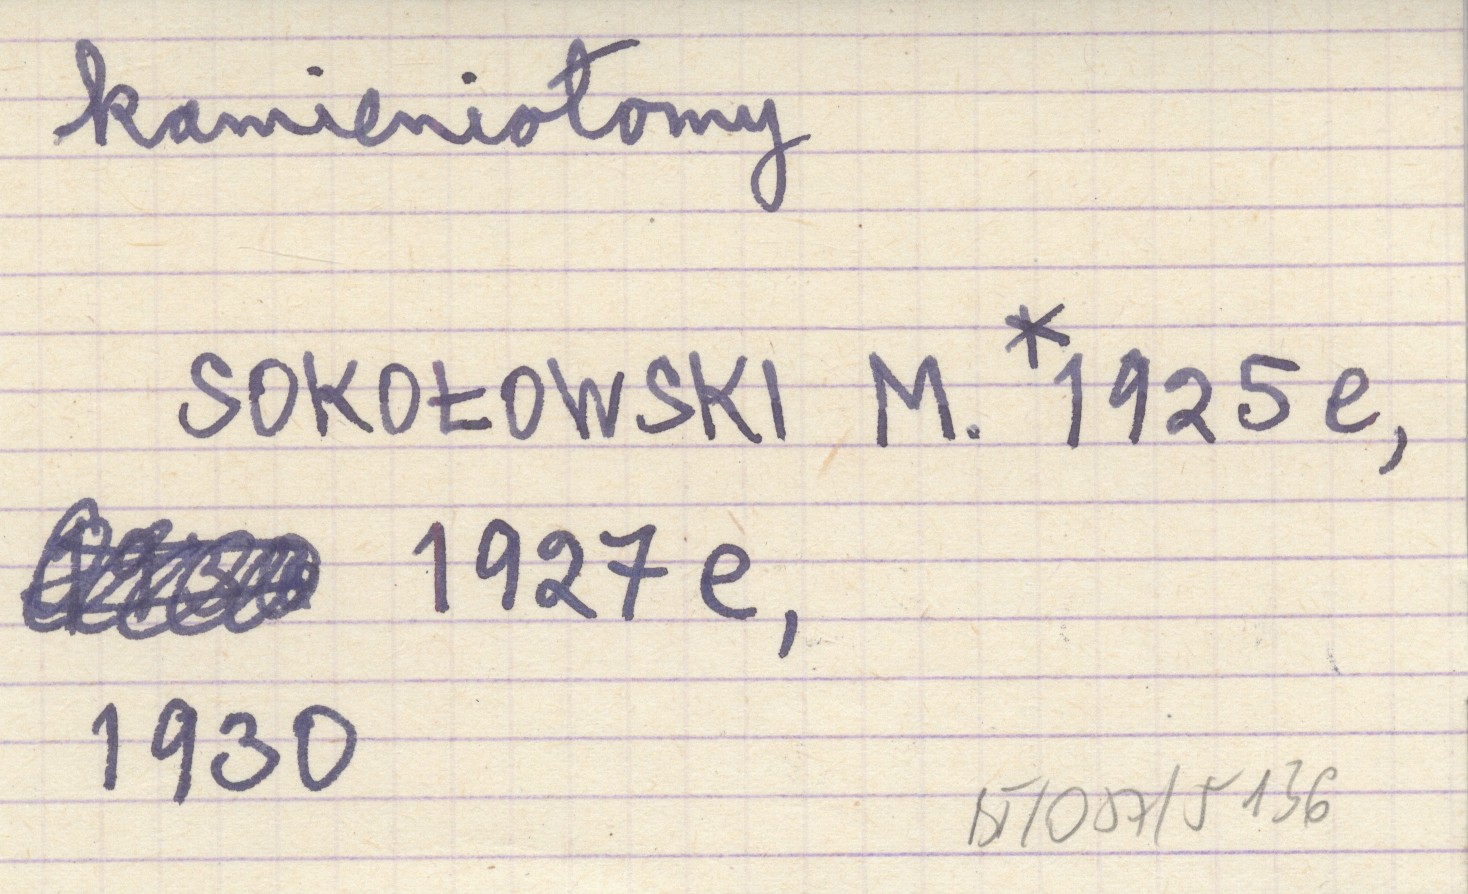 kamieniołomy
SOKOŁOWSKI M. *1925e,
1927e,
1930
136